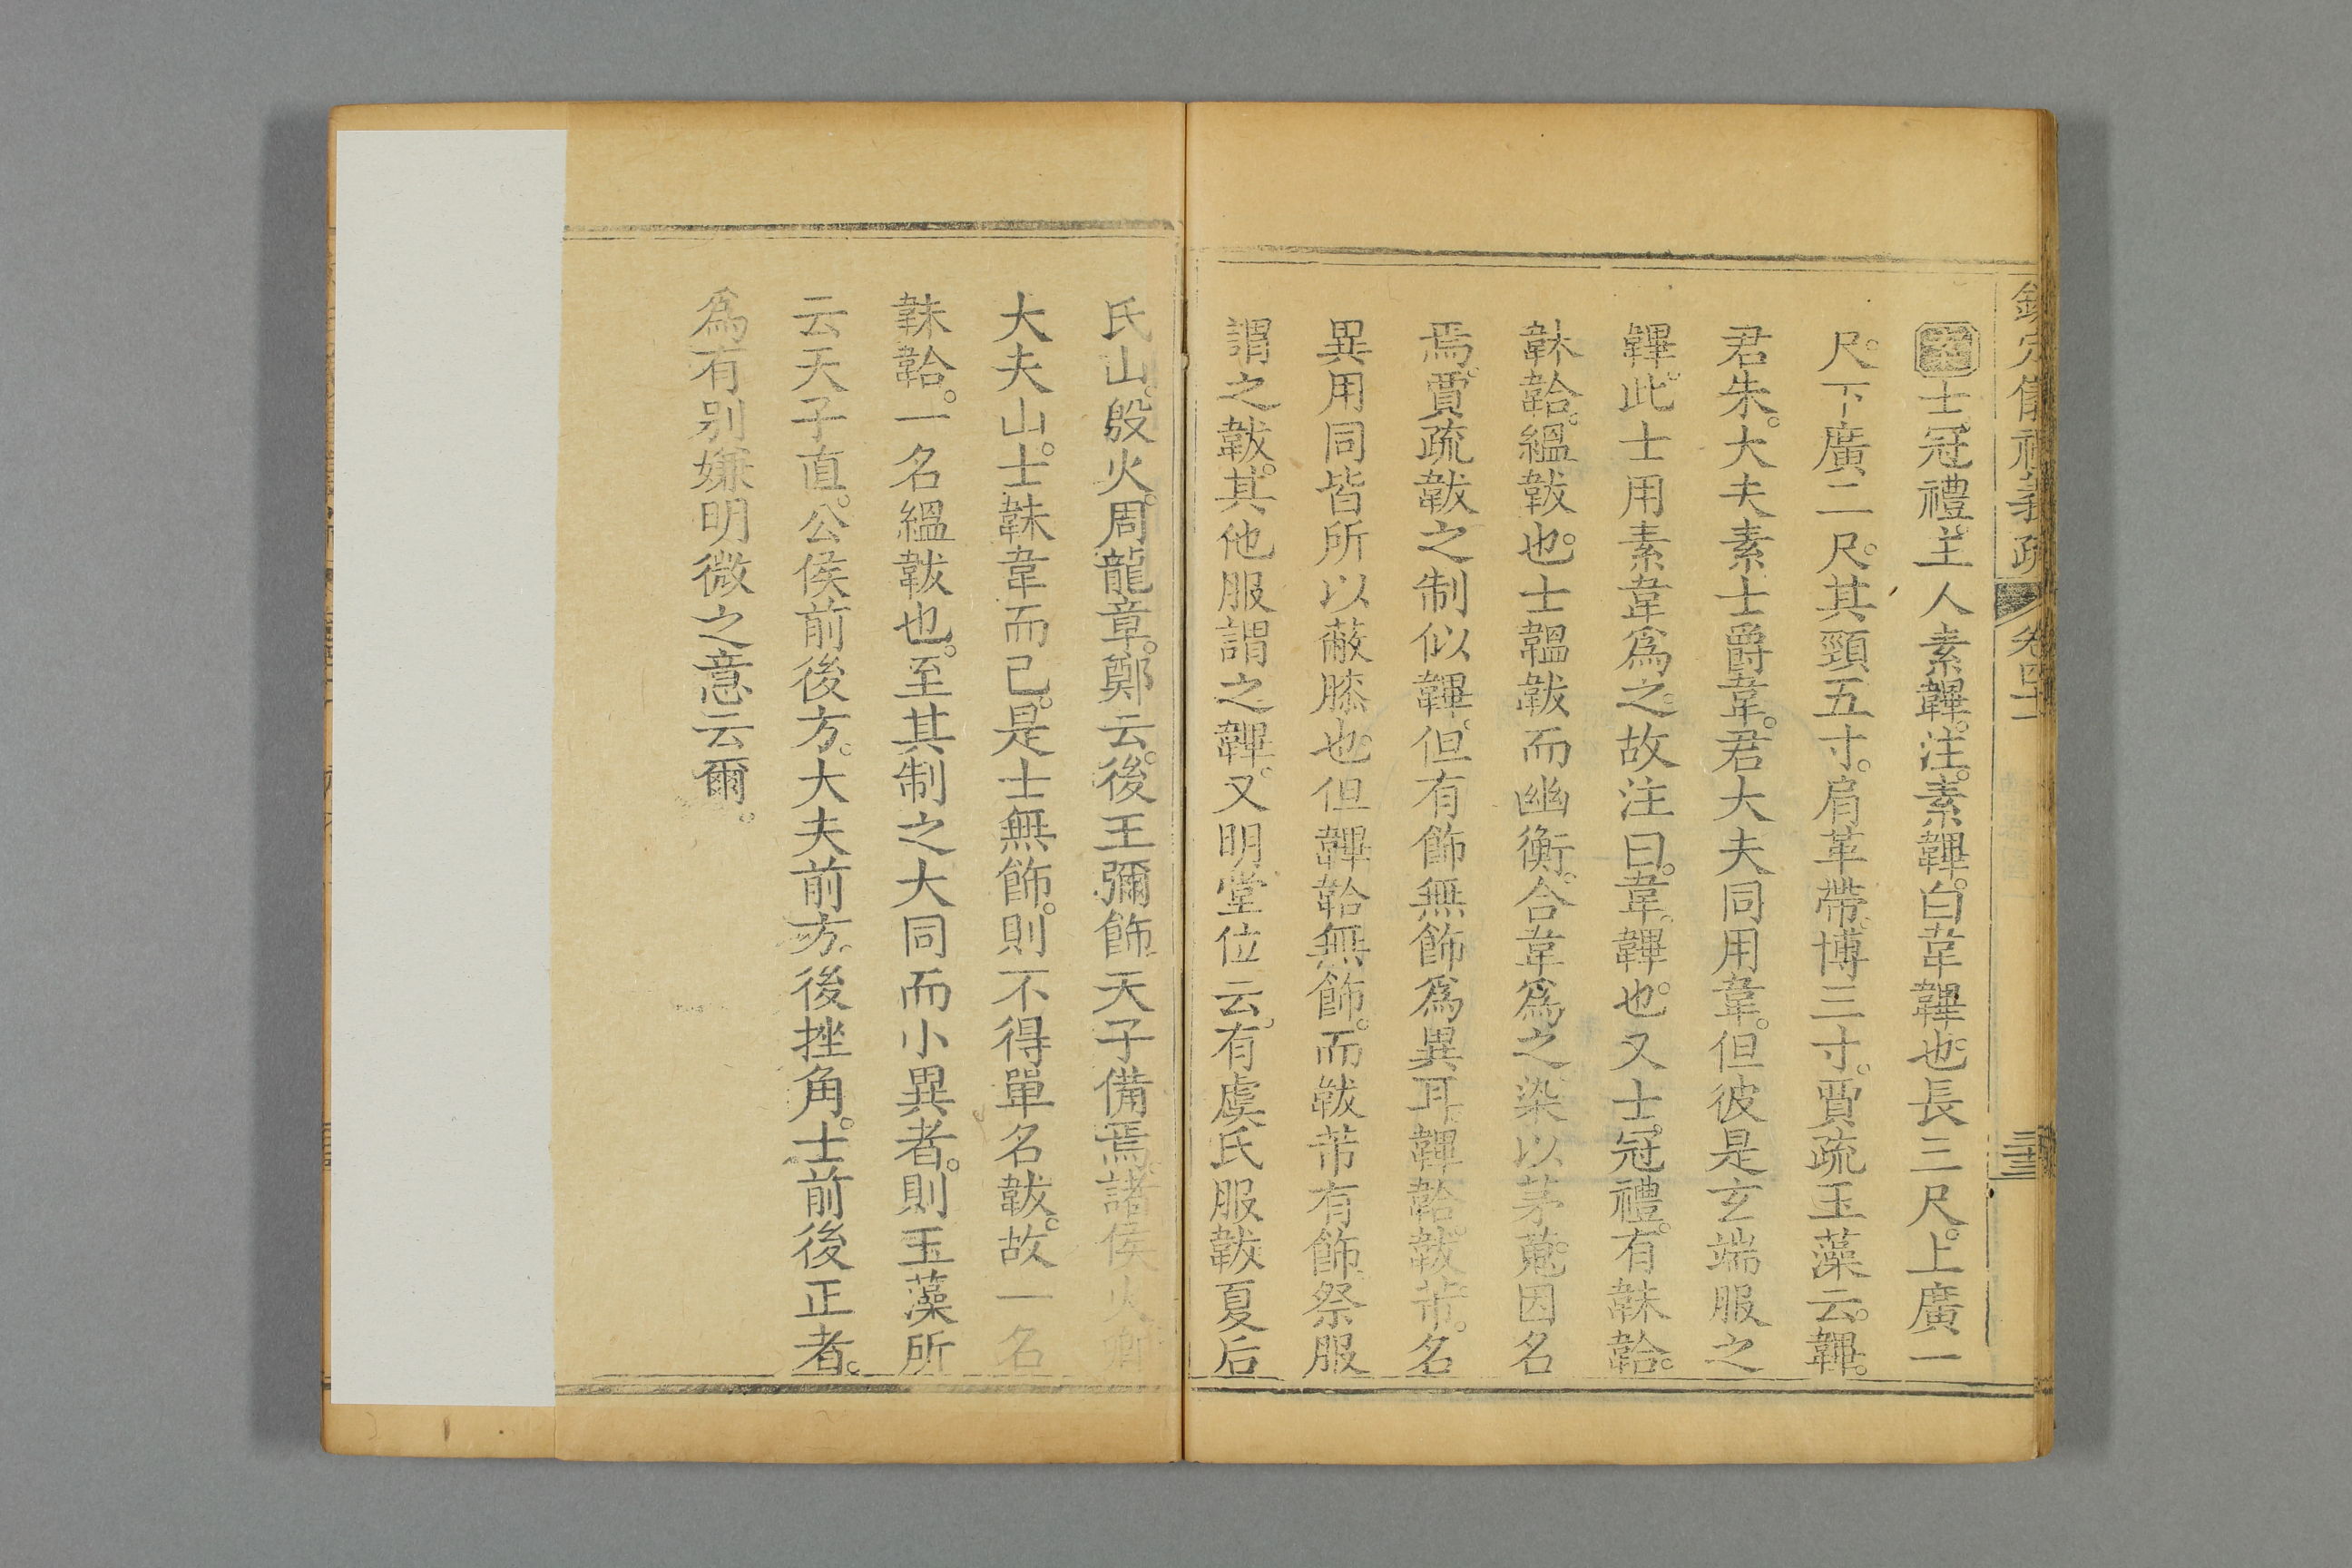 欽定儀禮義疏 卷四十一 三十三
士冠禮主人素韠。注。素韠。白韋韠也。長三尺。上廣一
尺。下廣二尺。其頸五寸。肩革帶。博三寸。賈疏玉藻云。韠。
君朱。大夫素士爵韋。君大夫同用韋。但彼是玄端服之
韠。此士用素韋爲之。故注曰。韋。韠也。又士冠禮。有韎韐。
韎韐。縕韍也。士韞韍而幽衡。合韋爲之染以茅蒐。因名
焉。賈疏韍之制似韠。但有飾無飾爲異耳。韠韐。韍芾。名
異用同皆所以蔽膝也。但韠韐無飾。而韍芾有飾祭服
謂之韍。其他服謂之韠。又明堂位云。有虞氏服韍夏后
氏山。殷火。周龍章。鄭云。後王彌飾天子備焉。諸侯火卿
大夫山。士韎韋而已。是士無飾。則不得單名韍。故一名
韎韐。一名縕韍也。至其制之大同而小異者。則玉藻所
云天子直。公侯前後方。大夫前方。後挫角。士前後正者。
爲有别嫌明微之意云爾。